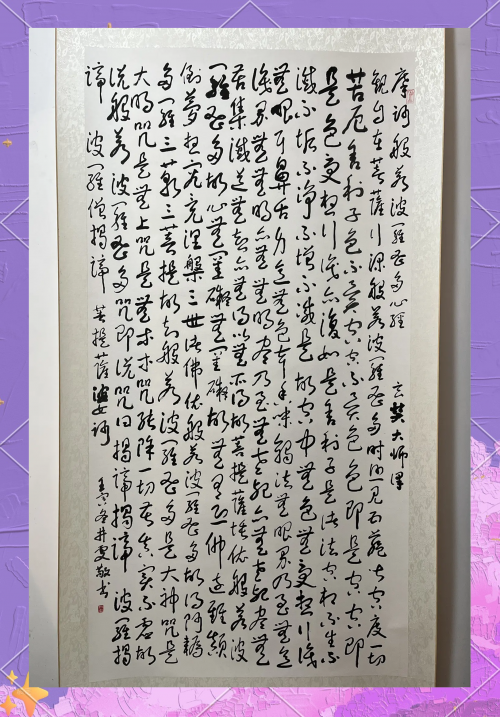 摩訶般若波羅蜜多心經 玄奘大師譯
觀自在菩薩行深般若波羅蜜多時照見五蘊皆空度一切
苦厄舍利子色不異空空不異色色即是空空即
是色受想行識亦復如是舍利子是諸法空相不生不
滅不垢不淨不增不減是故空中無色無受想行識
無眼耳鼻舌身意無色聲香味觸法無眼界乃至無意
識界無無明亦無無明盡乃至無老死亦無老死盡無
苦集滅道無智亦無得以無所得故菩提薩埵依般若波
羅蜜多故心無罣礙無罣礙故無有恐怖遠離顛
倒夢想究竟涅槃三世諸佛依般若波羅蜜多故得阿耨
多羅三藐三菩提故知般若波羅蜜多是大神咒是
大明咒是無上咒是無等等咒能除一切苦真實不虛故
說般若波羅蜜多咒即說咒曰揭諦揭諦 波羅揭
諦 波羅僧揭諦 菩提薩婆訶
冬井雯敬书